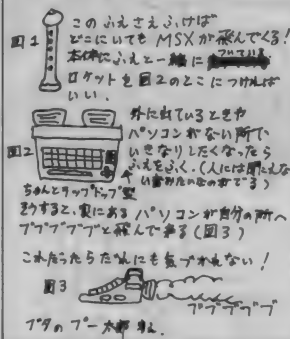 図1
このふえさえふけば
どこにいてもMSXが飛んでくる!
本体にふえと一緒に
ロケットを図2のとこにつければ
いい。
図2
外に出ているときや
パソコンがない所で
いきなりしたくなったら
ふえをふく。(人には聞こえない
ちゃんとラップトップ型
そうすると、家にあるパソコンが自分の所へ
ブブブブブと飛んで来る(図3)
これだったらだれにも気づかれない!
図3
ブブブブブ
ブタのプー太郎